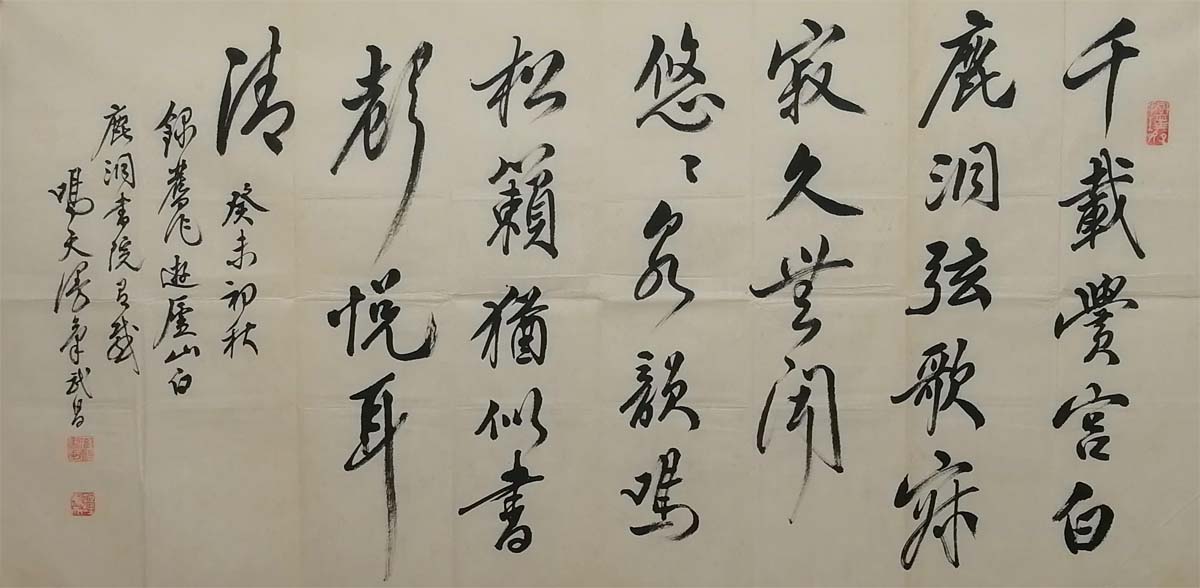 千載黌宮白
鹿洞弦歌寂
寂久無聞
悠〻泉韻鳴
松籟猶似書
聲悅耳
清
癸未初秋
錄舊作遊廬山白
鹿洞書院有感
鳴天漫筆武昌